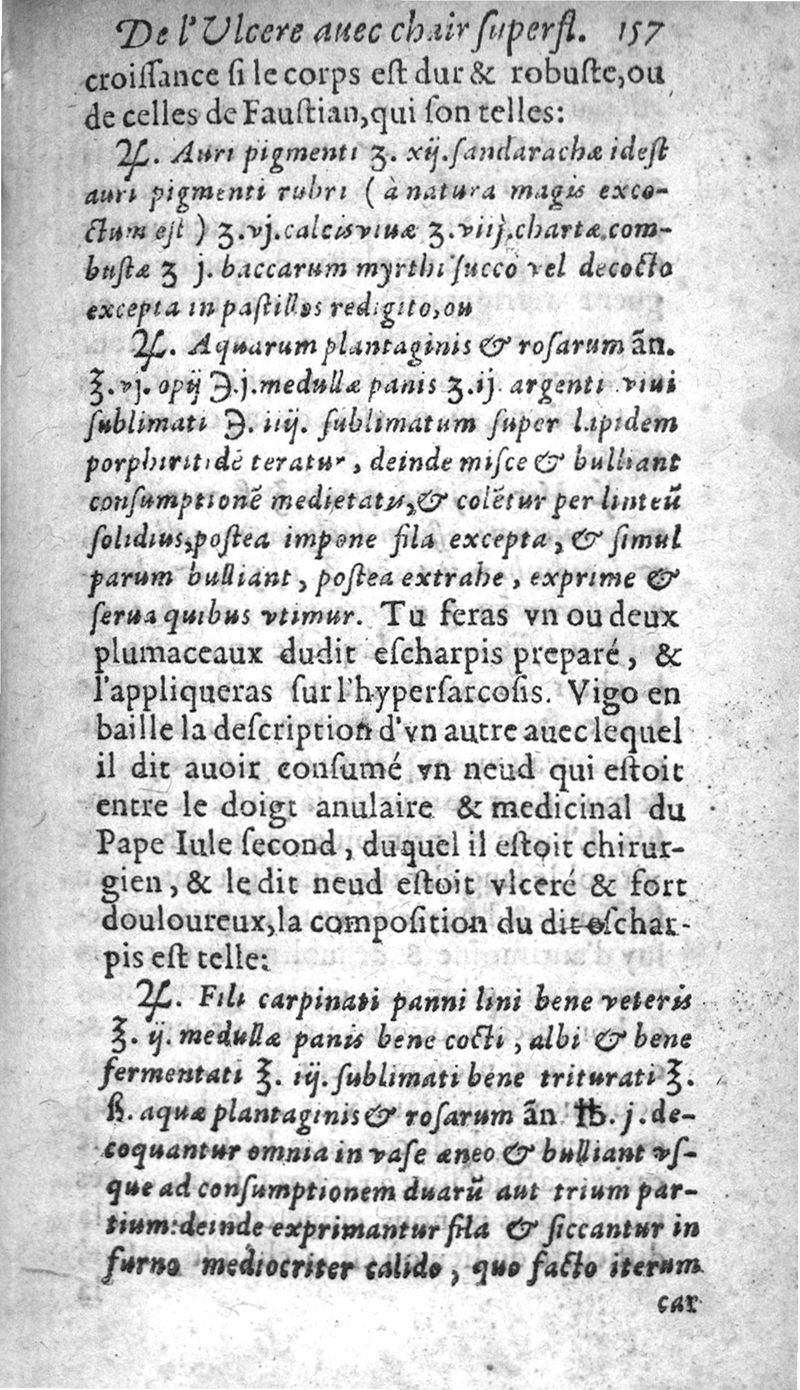 De l'Vlcere auec chair ſuperfl. 157
croiſſance ſi le corps eſt dur & robuſte,ou
de celles de Fauſtian,qui ſon telles:
♃. Auri pigmenti ʒ. xij.ſandarachæ ideſt
auri pigmenti rubri ( à natura magis exco-
ctum eſt ) ʒ.vj.calcis viuæ ʒ.viij.chartæ com-
buſtæ ʒ j. baccarum myrthi ſucco vel decocto
excepta in paſtillos redigito,ou
♃. Aquarum plantaginis & roſarum ãn.
℥.vj. opij ℈.j.medullæ panis ʒ.ij. argenti viui
ſublimati ℈. iiij. ſublimatum ſuper lapidem
porphiritidē teratur, deinde miſce & bulliant
conſumptionē medietatis,& colētur per linteū
ſolidius,poſtea impone fila excepta, & ſimul
parum bulliant, poſtea extrahe, exprime &
ſerua quibus vtimur. Tu feras vn ou deux
plumaceaux dudit eſcharpis preparé, &
l'appliqueras ſur l'hyperſarcoſis. Vigo en
baille la deſcription d'vn autre auec lequel
il dit auoir conſumé vn neud qui eſtoit
entre le doigt anulaire & medicinal du
Pape Iule ſecond, duquel il eſtoit chirur-
gien, & ledit neud eſtoit vlceré & fort
douloureux,la compoſition du dit eſchar-
pis eſt telle:
♃. Fili carpinati panni lini bene veteris
℥. ij. medullæ panis bene cocti, albi & bene
fermentati ℥. iij. ſublimati bene triturati ℥.
ß. aquæ plantaginis & roſarum ãn ℔. j. de-
coquantur omnia in vaſe æneo & bulliant vſ-
que ad conſumptionem duarū aut trium par-
tium: deinde exprimantur fila & ſiccantur in
furno mediocriter calido, quo facto iterum
car